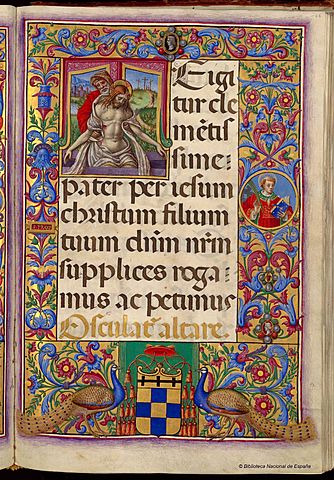 Eigi
tur cle
mẽtis
sime:
pater per iesum
christum filium
tuum dñm nr̃m
supplices roga=
mus ac petimus
Osculat' altare.
© Biblioteca Nacional de España